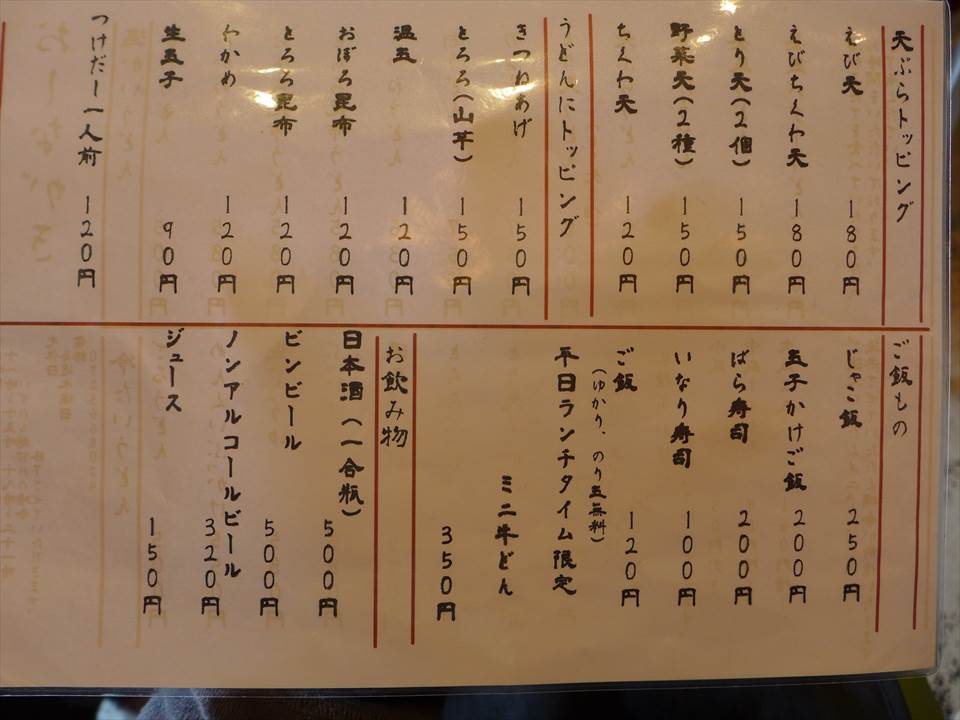 天ぷらトッピング
えび天 180円
えびちくわ天 180円
とり天(2個) 150円
野菜天(2種) 150円
ちくわ天 120円
うどんにトッピング
きつねあげ 150円
とろろ(山芋) 150円
温玉 120円
おぼろ昆布 120円
とろろ昆布 120円
わかめ 120円
生玉子 90円
つけだし一人前 120円
ご飯もの
じゃこ飯 250円
玉子かけご飯 200円
ばら寿司 200円
いなり寿司 100円
ご飯 120円
(ゆかり、のり玉無料)
平日ランチタイム限定
ミニ牛どん
350円
お飲み物
日本酒(一合瓶) 500円
ビンビール 500円
ノンアルコールビール 320円
ジュース 150円